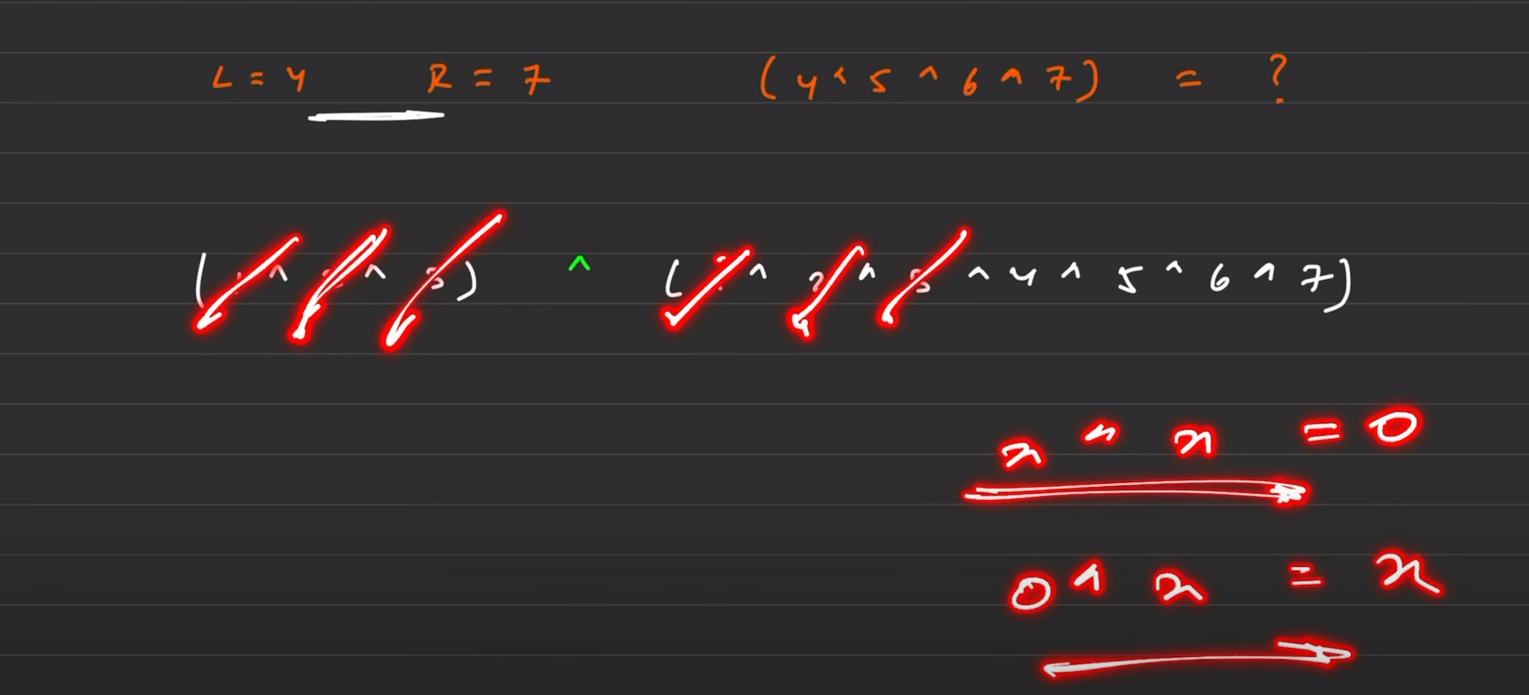 L = 4 R = 7 (4 ^ 5 ^ 6 ^ 7) = ?
(1 ^ 2 ^ 3) ^ (1 ^ 2 ^ 3 ^ 4 ^ 5 ^ 6 ^ 7)
x ^ x = 0
0 ^ x = x